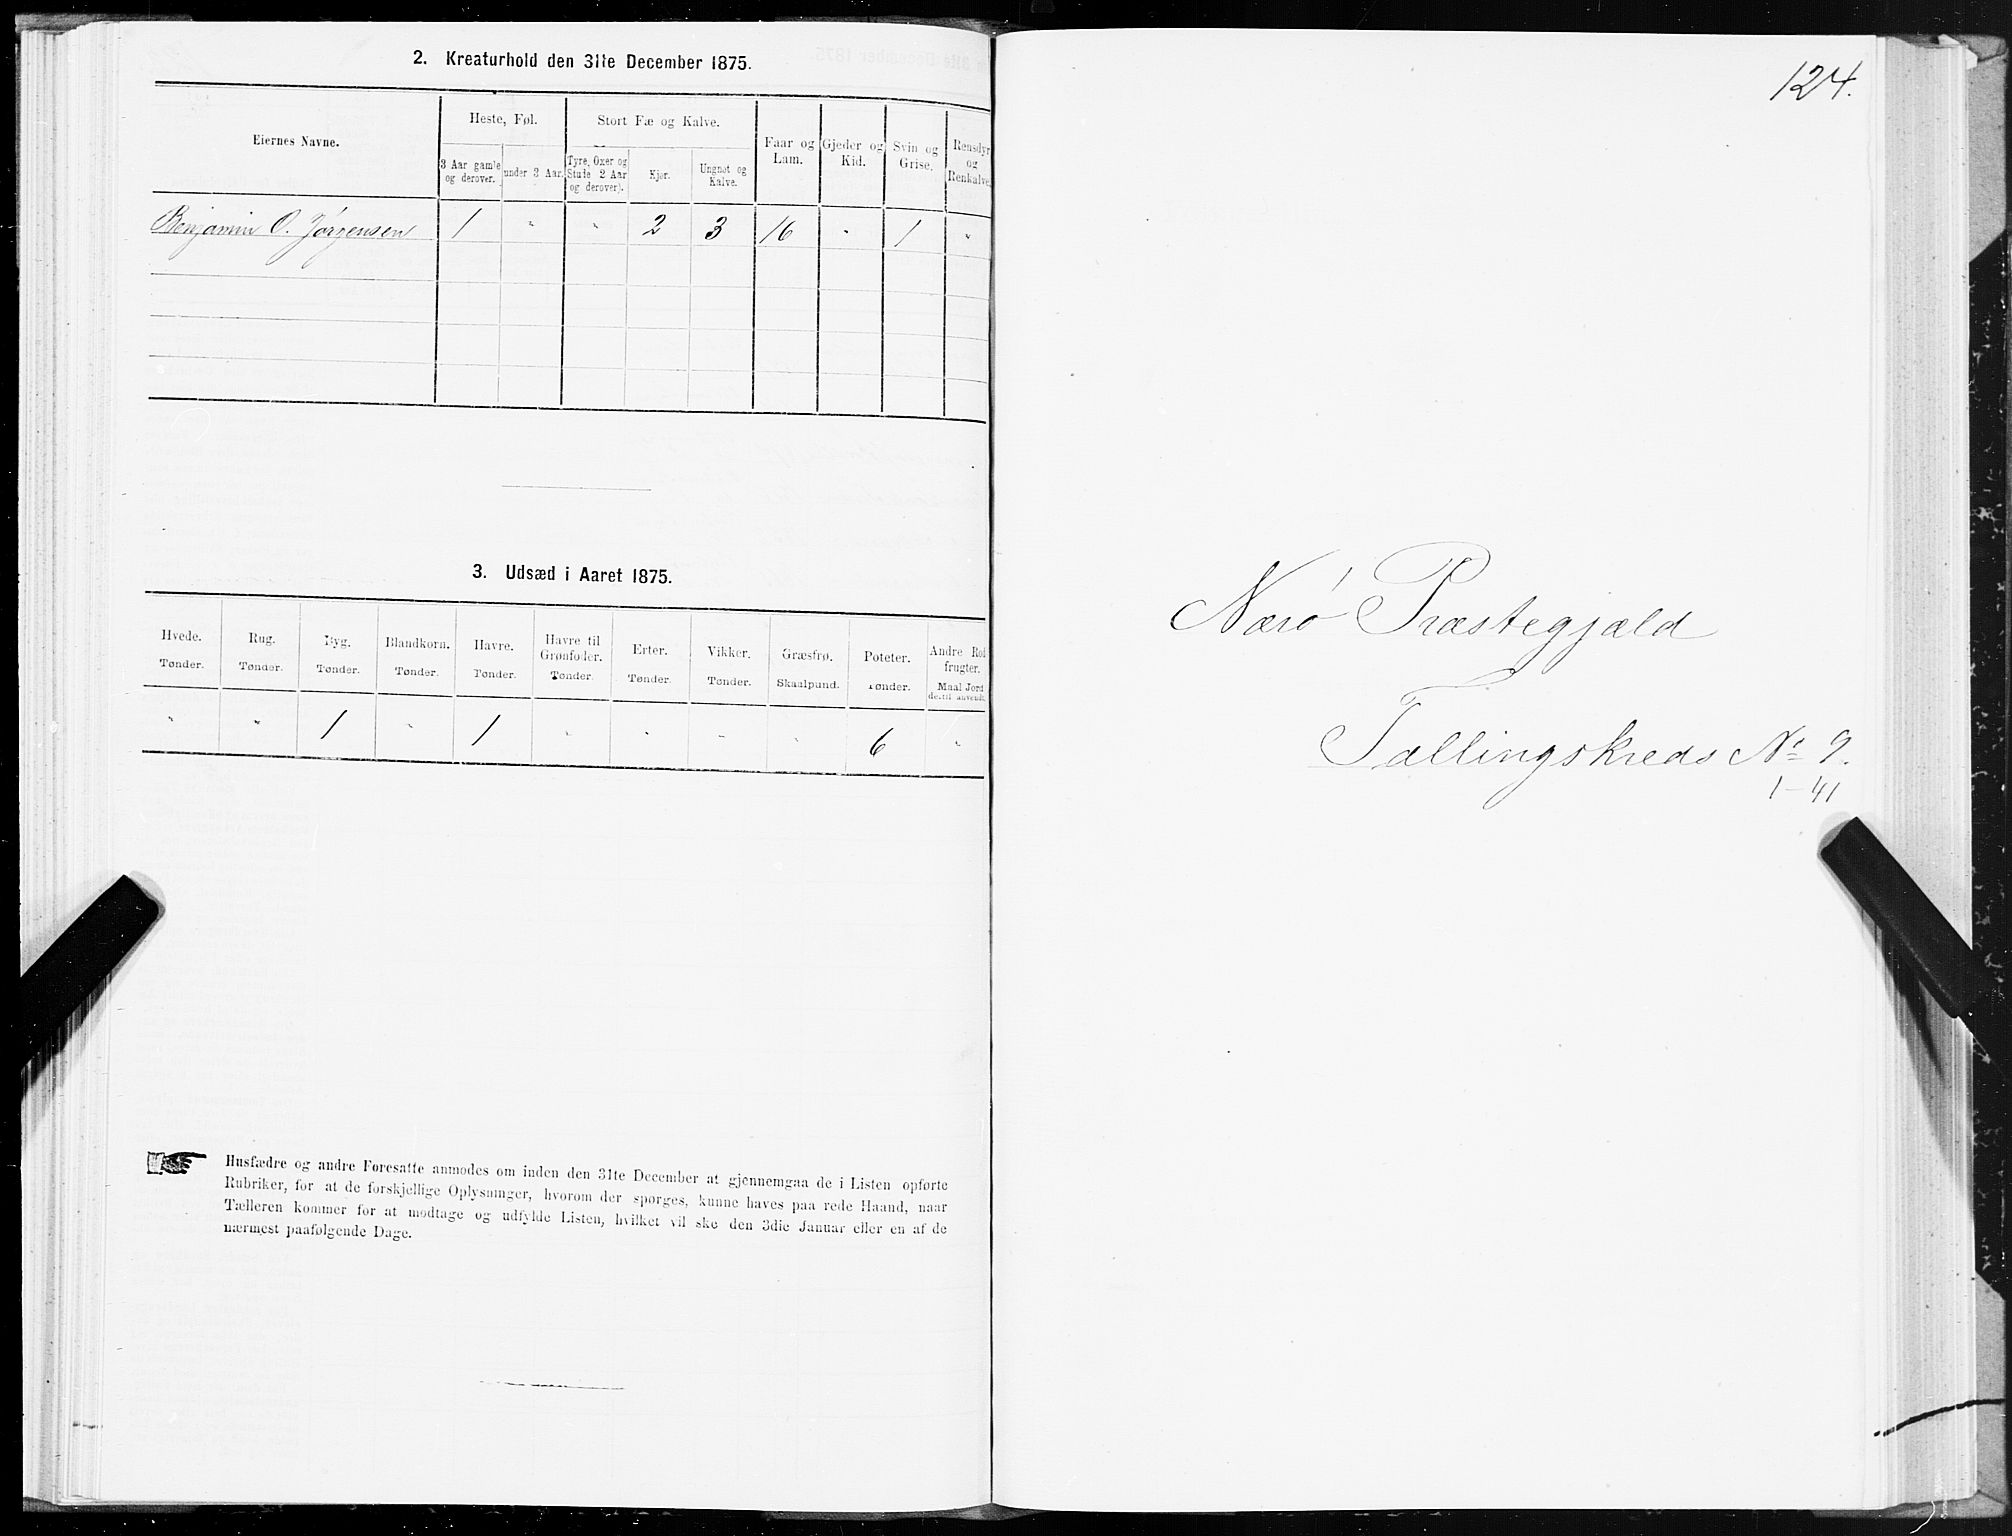 2. Kreaturhold den 31te December 1875.
Eiernes Navne.
Heste, Føl.
Stort Fæ og Kalve.
Faar og Lam.
Gjeder og Kid.
Svin og Grise.
Rensdyr og Renkalve.
3 Aar gamle og derover.
under 3 Aar.
Tyre, Oxer og Stude (2 Aar og derover).
Kjør.
Ungnøt og Kalve.
Benjamin O. Jørgensen 1 " " 2 3 16 " 1 "
3. Udsæd i Aaret 1875.
Hvede. Rug. Byg. Blandkorn. Havre. Havre til Grønfoder. Erter. Vikker. Græsfrø. Poteter. Andre Rodfrugter.
Tønder. Tønder. Tønder. Tønder. Tønder. Tønder. Tønder. Tønder. Skaalpund. Tønder. Maal Jord dertil anvendt.
" " 1 " 1 " " " " 6 "
Husfædre og andre Foresatte anmodes om inden den 31te December at gjennemgaa de i Listen opførte
Rubriker, for at de forskjellige Oplysninger, hvorom der spørges, kunne haves paa rede Haand, naar
Tælleren kommer for at modtage og udfylde Listen, hvilket vil ske den 3die Januar eller en af de
nærmest paafølgende Dage.
124.
Nærø Præstegjæld
Tællingskreds No 9.
1-41